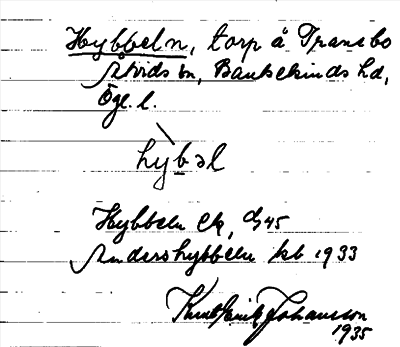 Hybbeln, torp å Transbo
Åtvids sn, Bankekinds hd,
Ögl. l.
hybəl
Hybbeln Ek, G45
Andershybbeln kb 1933
Knut Erik Johansson
1935